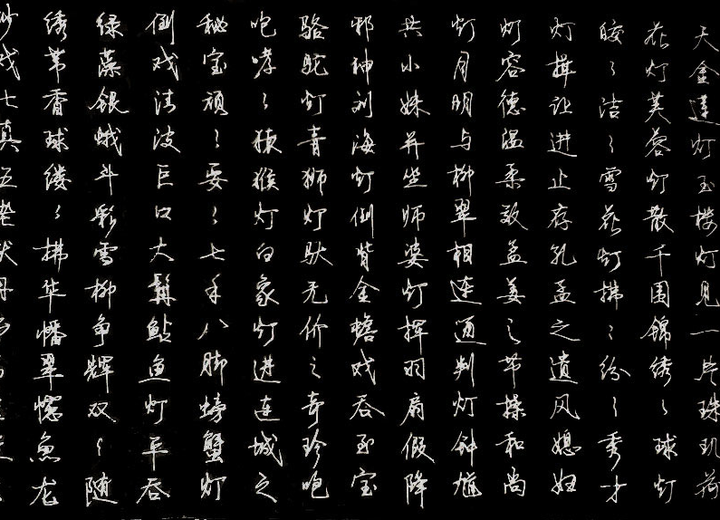 天金莲灯玉楼灯见一片珠玑荷
花灯芙蓉灯散千围锦绣々球灯
皎々洁々雪花灯拂々纷々秀才
灯揖让进止存孔孟之遗风媳妇
灯容德温柔效孟姜之节操和尚
灯月明与柳翠相连通判灯钟馗
共小妹并坐师婆灯挥羽扇假降
邪神刘海灯倒背金蟾戏吞至宝
骆驼灯青狮灯驮无价之奇珍咆
咆哮々猿猴灯白象灯进连城之
秘宝顽々耍々七手八脚螃蟹灯
倒戏清波巨口大髯鲇鱼灯平吞
绿藻银蛾斗彩雪柳争辉双々随
绣带香球缕々拂华幡翠幰鱼龙
沙戏七真五老献丹书